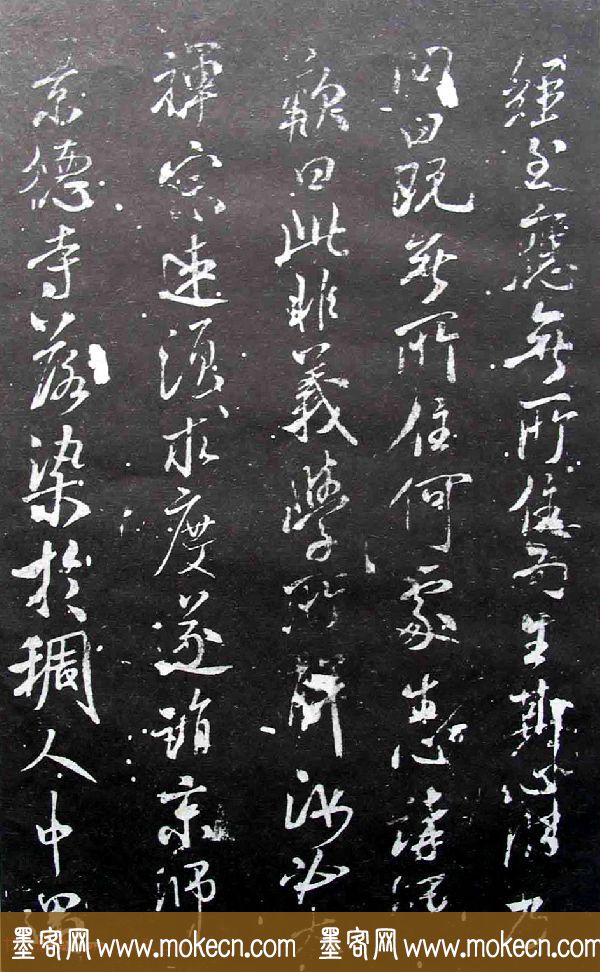 經至應無所住而生其心
問曰既無所住何處生心講經
歎曰此非義學所解汝必
禪宗速須求度遂詣京師
景德寺落染於稠人中
墨客网 www.mokecn.com 墨客网 www.mokecn.com